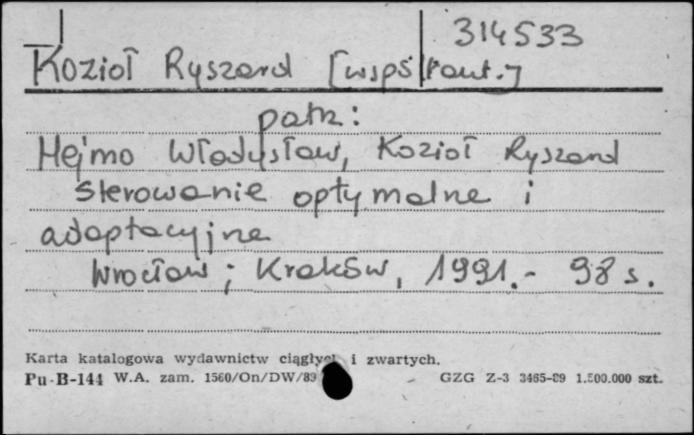 314533
Kozioł Ryszard [współawt.]
patrz:
Hejmo Władysław, Kozioł Ryszard
Sterowanie optymalne i
adaptacyjne
Wrocław; Kraków, 1991.- 98 s.
Karta katalogowa wydawnictw ciągłych i zwartych.
Pu-B-144 W.A. zam. 1560/On/DW/89 GZG Z-3 3465-89 1.500.000 szt.